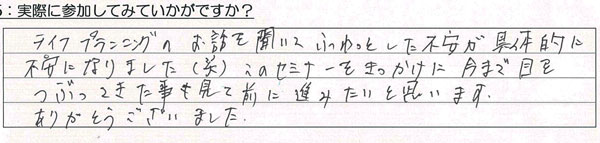 5：実際に参加してみていかがですか？
ライフプランニングの お話を聞いて ふわっとした不安が具体的に
不安になりました（笑）このセミナーをきっかけに 今まで目を
つぶってきた事を見て前に進みたいと思います.
ありがとうございました.